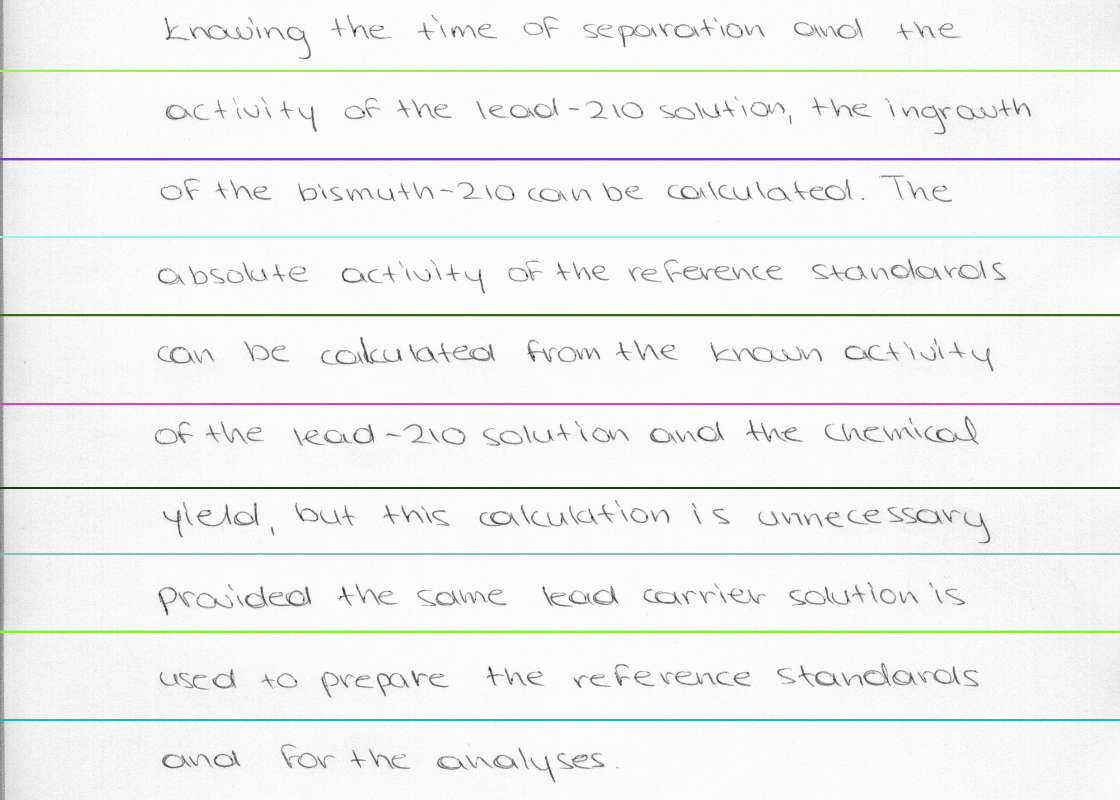 Knowing the time of separation and the
activity of the lead-210 solution, the ingrowth
of the bismuth-210 can be calculated. The
absolute activity of the reference standards
can be calculated from the known activity
of the lead-210 solution and the chemical
yield, but this calculation is unnecessary
provided the same lead carrier solution is
used to prepare the reference standards
and for the analyses.